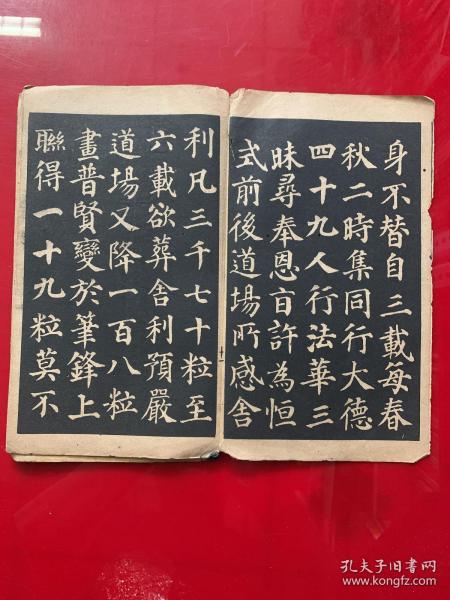 身不替自三載每春
秋二時集同行大德
四十九人行法華三
昧尋奉恩旨許為恒
式前後道場所感舍
利凡三千七十粒至
六載欲葬舍利預嚴
道場又降一百八粒
畫普賢變於筆鋒上
聯得一十九粒莫不
孔夫子旧书网
www.kongfz.com